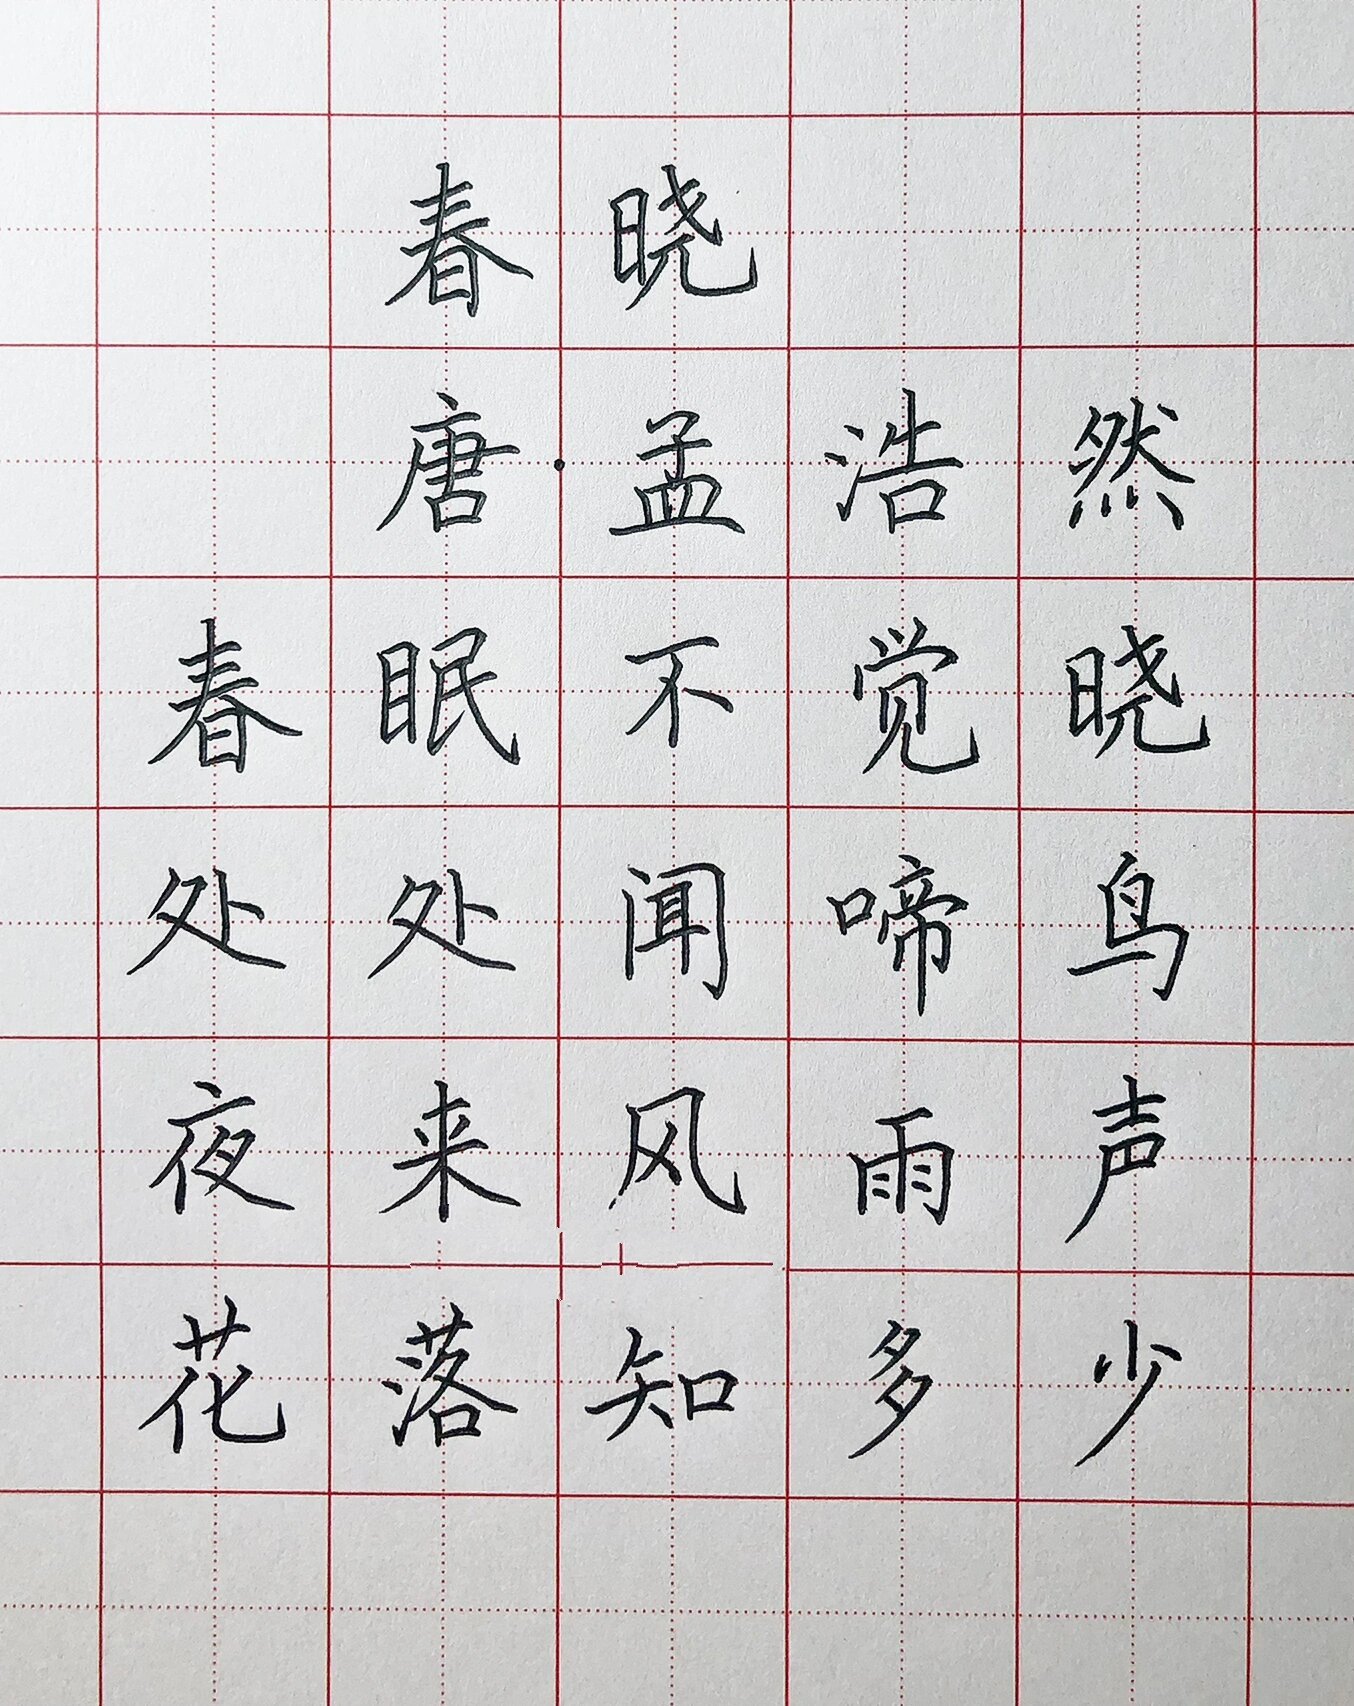 春晓
唐·孟浩然
春眠不觉晓
处处闻啼鸟
夜来风雨声
花落知多少